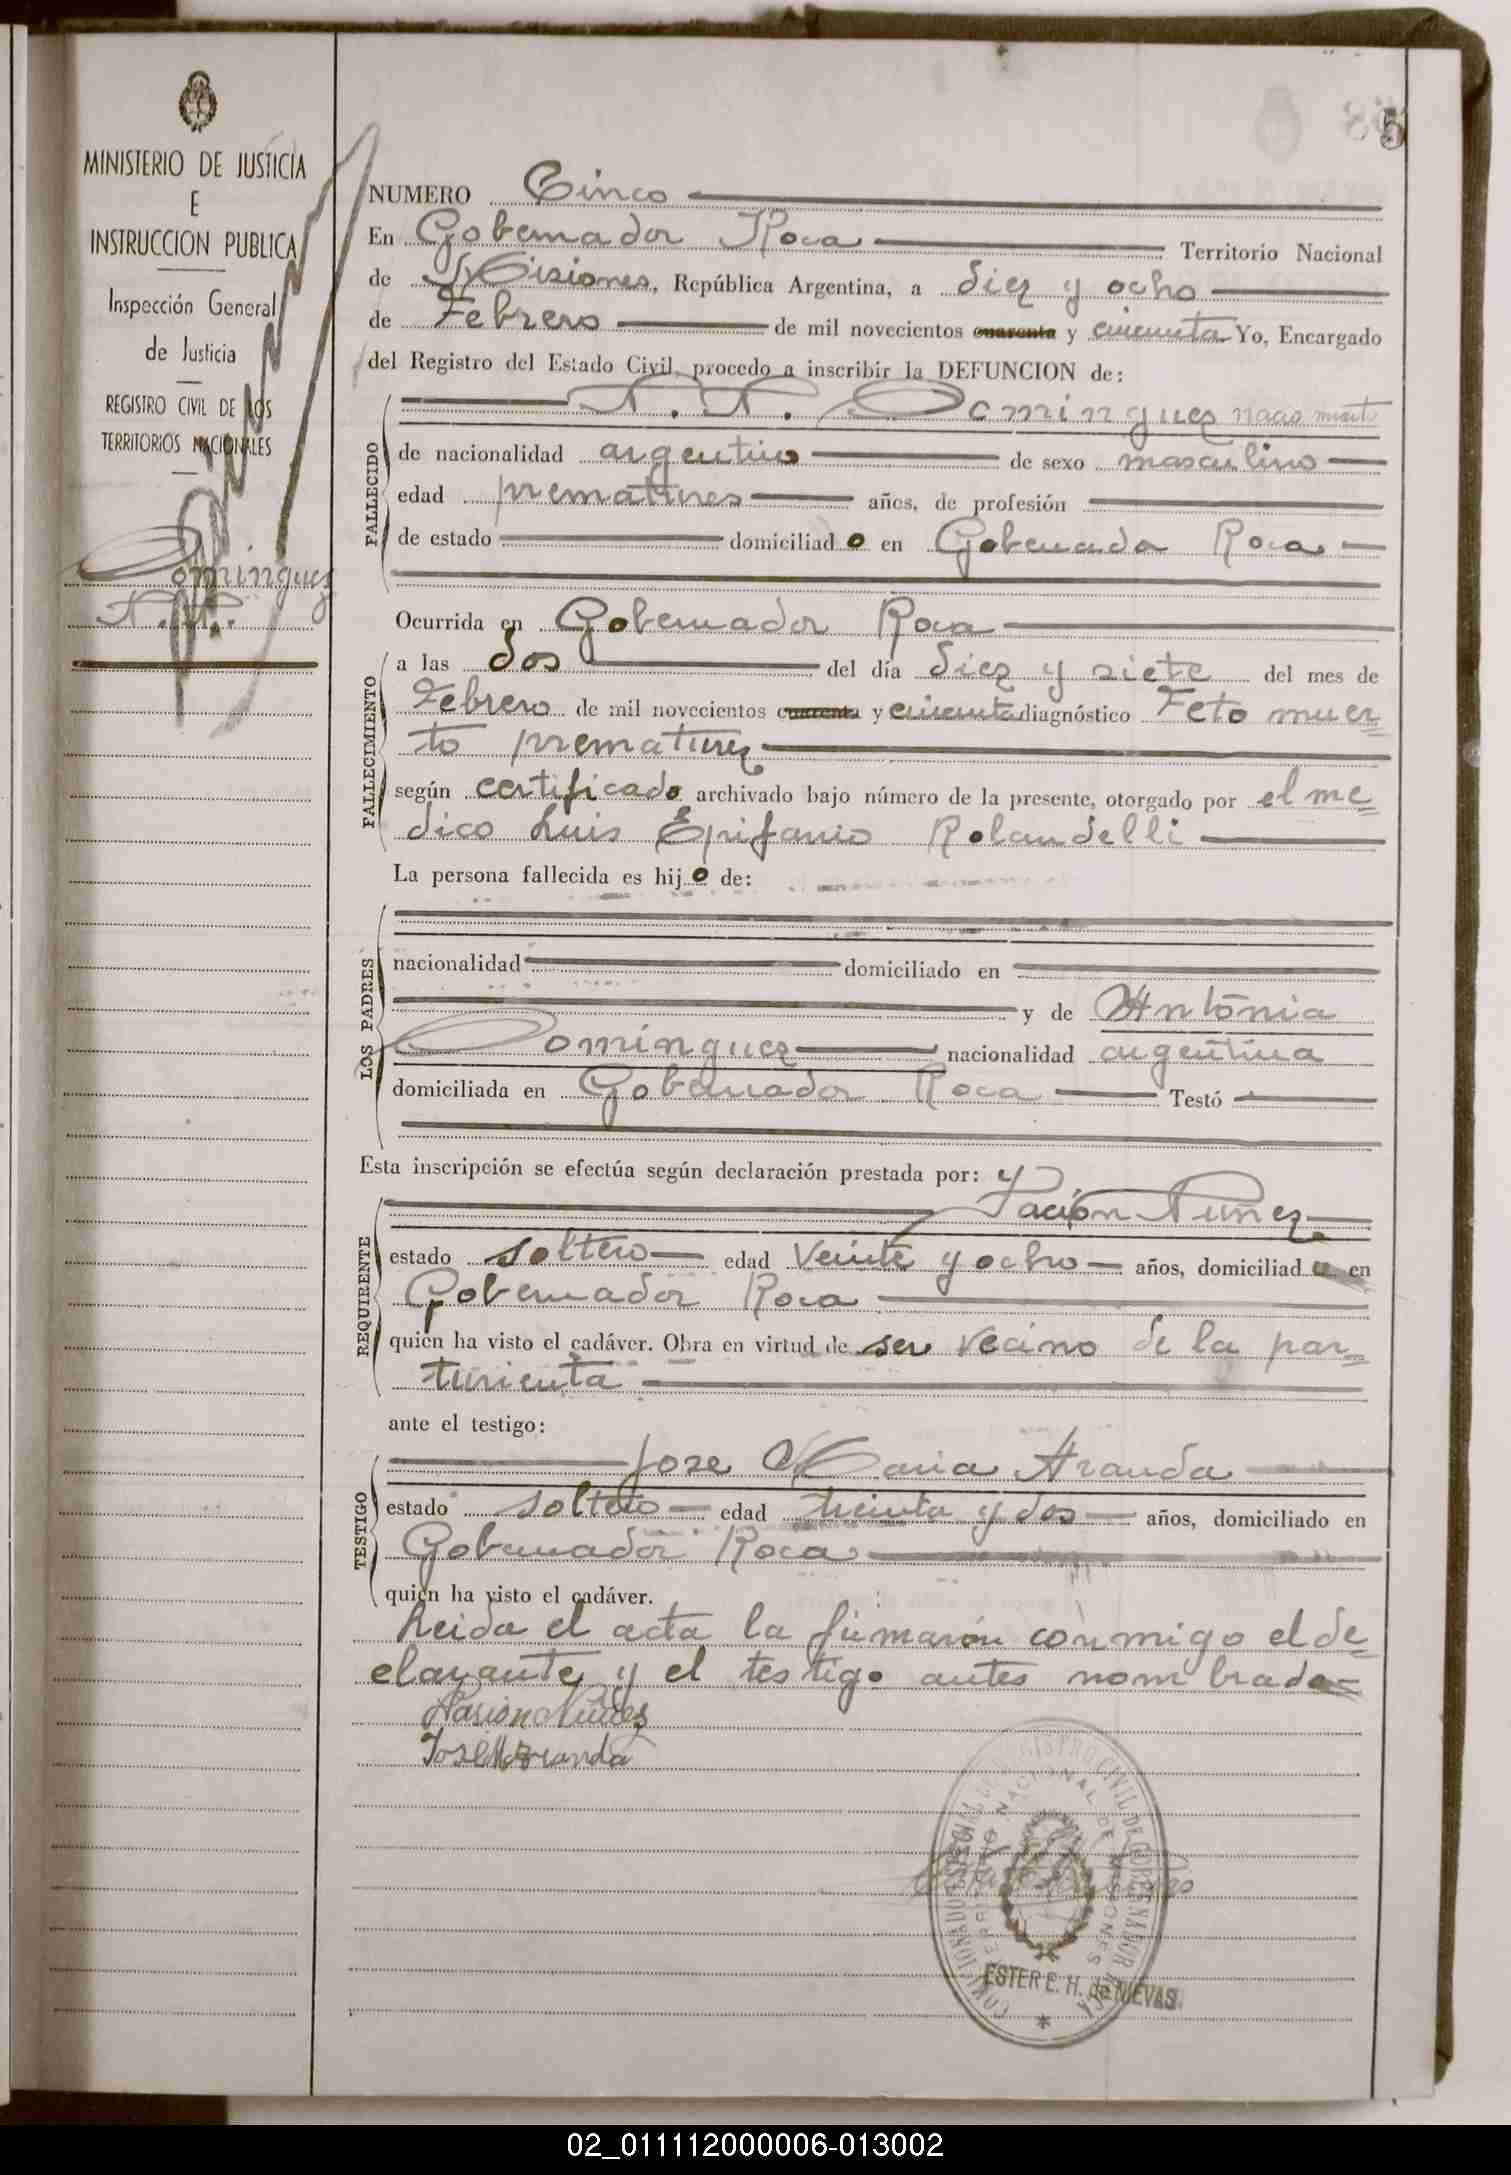 5
MINISTERIO DE JUSTICIA
E
INSTRUCCION PUBLICA
Inspección General
de Justicia
REGISTRO CIVIL DE LOS
TERRITORIOS NACIONALES
Dominguez
N. N.
NUMERO Cinco
En Gobernador Roca Territorio Nacional
de Misiones, República Argentina, a diez y ocho
de Febrero de mil novecientos cuarenta y cincuenta Yo, Encargado
del Registro del Estado Civil, procedo a inscribir la DEFUNCION de:
N. N. Dominguez nacio muerto
FALLECIDO
de nacionalidad argentino de sexo masculino
edad prematurez años, de profesión
de estado domiciliado en Gobernador Roca
Ocurrida en Gobernador Roca
FALLECIMIENTO
a las dos del día diez y siete del mes de
Febrero de mil novecientos cuarenta y cincuenta diagnóstico Feto muer=
to prematurez
según certificado archivado bajo número de la presente, otorgado por el me=
dico Luis Epifanio Rolandelli
La persona fallecida es hijo de:
LOS PADRES
nacionalidad domiciliado en
y de Antonia
Dominguez nacionalidad argentina
domiciliada en Gobernador Roca Testó
Esta inscripción se efectúa según declaración prestada por:
Pación Nuñez
REQUIRENTE
estado soltero edad veinte y ocho años, domiciliado en
Gobernador Roca
quien ha visto el cadáver. Obra en virtud de ser vecino de la par=
turienta
ante el testigo:
Jose Maria Aranda
TESTIGO
estado soltero edad treinta y dos años, domiciliado en
Gobernador Roca
quien ha visto el cadáver.
Leida el acta la firmarón conmigo el de=
clarante y el testigo antes nombrado=
Pasion Nuñes
Jose M Aranda
REGISTRO CIVIL DE GOBERNADOR ROCA
TERRITORIO NACIONAL DE MISIONES
ESTER E. H. de NIEVAS
02_011112000006-013002